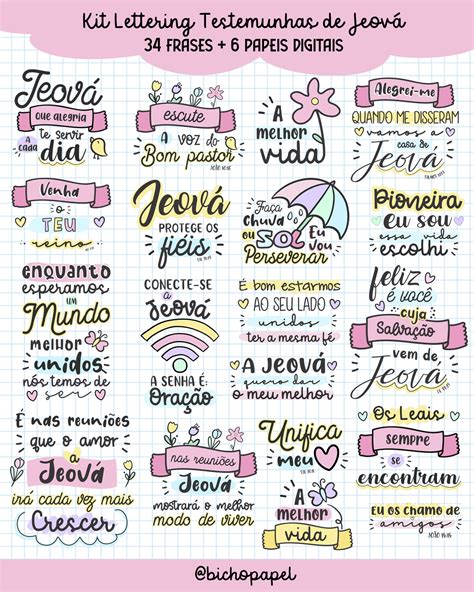 Kit Lettering Testemunhas de Jeová
34 FRASES + 6 PAPEIS DIGITAIS
Jeová
que alegria
te servir
a cada
dia
escute
A VOZ DO
Bom pastor
A
MELHOR
vida
Alegrei-me
QUANDO ME DISSERAM
vamos a
casa de
Jeová
Venha
O
TEU
reino
Jeová
PROTEGE OS
fiéis
Faça
Chuva
ou
SOL
Eu
Vou
Perseverar
Pioneira
Eu sou
essa vida
escolhi
enquanto
esperamos
um
Mundo
melhor
unidos
nós temos de
ser
CONECTE-SE
a
Jeová
A SENHA É:
Oração
É bom estarmos
AO SEU LADO
unidos
ter a mesma fé
A JEOVÁ
quero dar
o meu melhor
feliz
é você
cuja
Salvação
vem de
Jeová
É nas reuniões
que o amor
a
JEOVÁ
irá cada vez mais
Crescer
nas reuniões
JEOVÁ
mostrará o melhor
modo de viver
Unifica
meu
A
MELHOR
vida
Os Leais
sempre
se
encontram
Eu os chamo de
amigos
@bichopapel